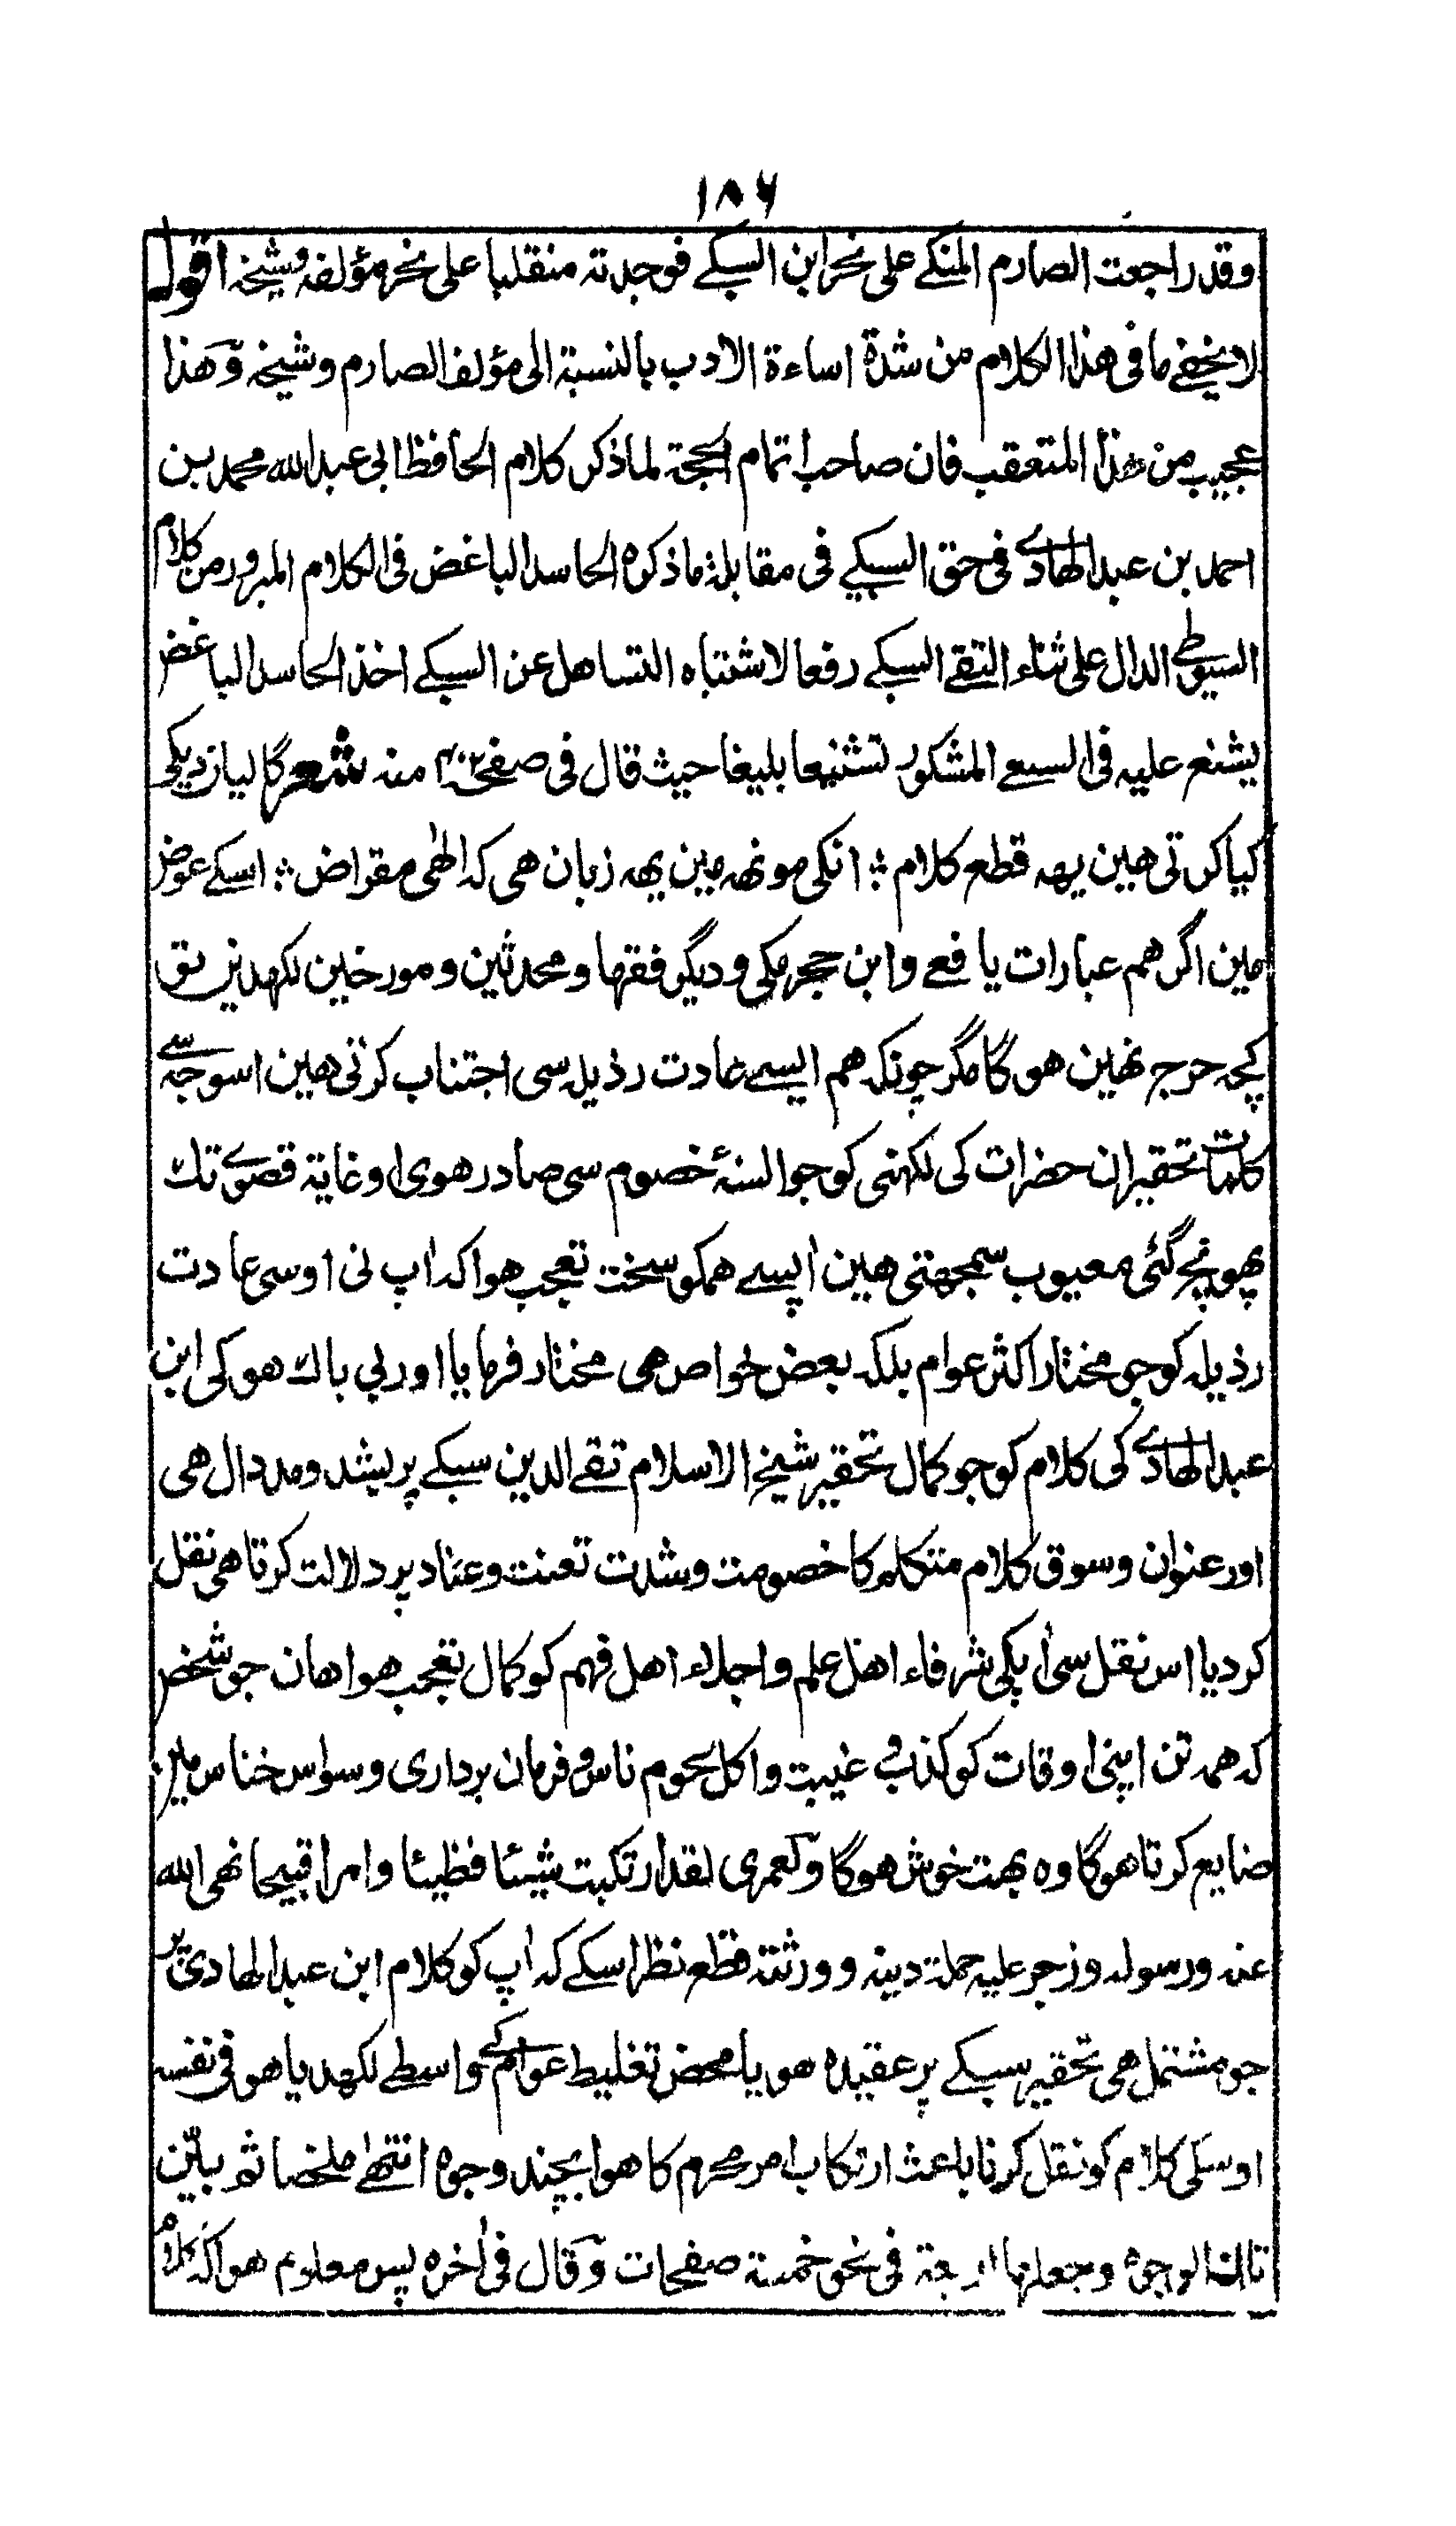 ١٨٦
وقد راجعت الصارم المنكے على نحر ابن السبكے فوجدته منقلبا على نحر مؤلفه وشيخه اقول
لا يخفے ما فى هذا الكلام من شدة اساءة الادب بالنسبة الى مؤلف الصارم وشيخه وهذا
عجيب من هذا المتعقب فان صاحب اتمام الحجة لما ذكر كلام الحافظ ابى عبد الله محمد بن
احمد بن عبد الهادے فى حق السبكے فى مقابلة ما ذكره الحاسد الباغض فى الكلام المبرور من كلام
السيوطے الدال على ثناء التقے السبكے رفعا لاشتباه التساهل عن السبكے اخذ الحاسد الباغض
يشنع عليه فى السعے المشكور تشنيعا بليغا حيث قال فى صفحه منه شعر گالیان دیکی
کیا کرتی هین یهہ قطع کلام ؞ انکی مونهہ مین یهہ زبان هی کہ الٰهی مقراض ؞ اسکے عوض
مین اگر هم عبارات یافعے وابن حجر مکی ودیگر فقها ومحدثین ومورخین لکهدین تو
کچہ حرج نهین هوگا مگر چونکہ هم ایسے عادت رذیلہ سی اجتناب کرتی هین اسوجہ سے
کلمات تحقیر ان حضرات کی لکهنی کو جو السنۂ خصوم سی صادر هوی او غایة قصوے تک
پهونچ گئی معیوب سمجهتی هین اٰپسے همکو سخت تعجب هوا کہ اٰپ نی اوسی عادت
رذیلہ کو جو مختار اکثر عوام بلکہ بعض خواص هی مختار فرمایا اور بی باک هوکی ابن
عبد الهادے کی کلام کو جو کمال تحقیر شیخ الاسلام تقے الدین سبکے پر بشد ومد دال هی
اور عنوان وسوق کلام متکلم کا خصومت وشدت تعنت وعناد پر دلالت کرتا هی نقل
کردیا اس نقل سی اٰپکی شرفاء اهل علم واجلاء اهل فهم کو کمال تعجب هوا هان جو شخص
کہ همہ تن اپنی اوقات کو کذب وغیبت واکل لحوم ناس وفرمان برداری وسواس خناس مین
ضایع کرتا هوگا وه بهت خوش هوگا ولعمرى لقد ارتكبت شيئا فظيئا وامرا قبيحا نهى الله
عنه ورسوله وزجر عليه حملة دينه وورثته قطع نظر اسکے کہ اٰپ کو کلام ابن عبد الهادی پر
جو مشتمل هی تحقیر سبکے پر عقیده هو یا محض تغلیط عوام کے واسطے لکهدیا هو فی نفسہ
اوسکی کلام کو نقل کرنا باعث ارتکاب امر محرم کا هوا بچند وجوه انتهے ملخصا ثم بيّن
تلك الوجوه وجعلها اربعة فى نحو خمسة صفحات وقال فى اٰخره پس معلوم هوا کہ کلام